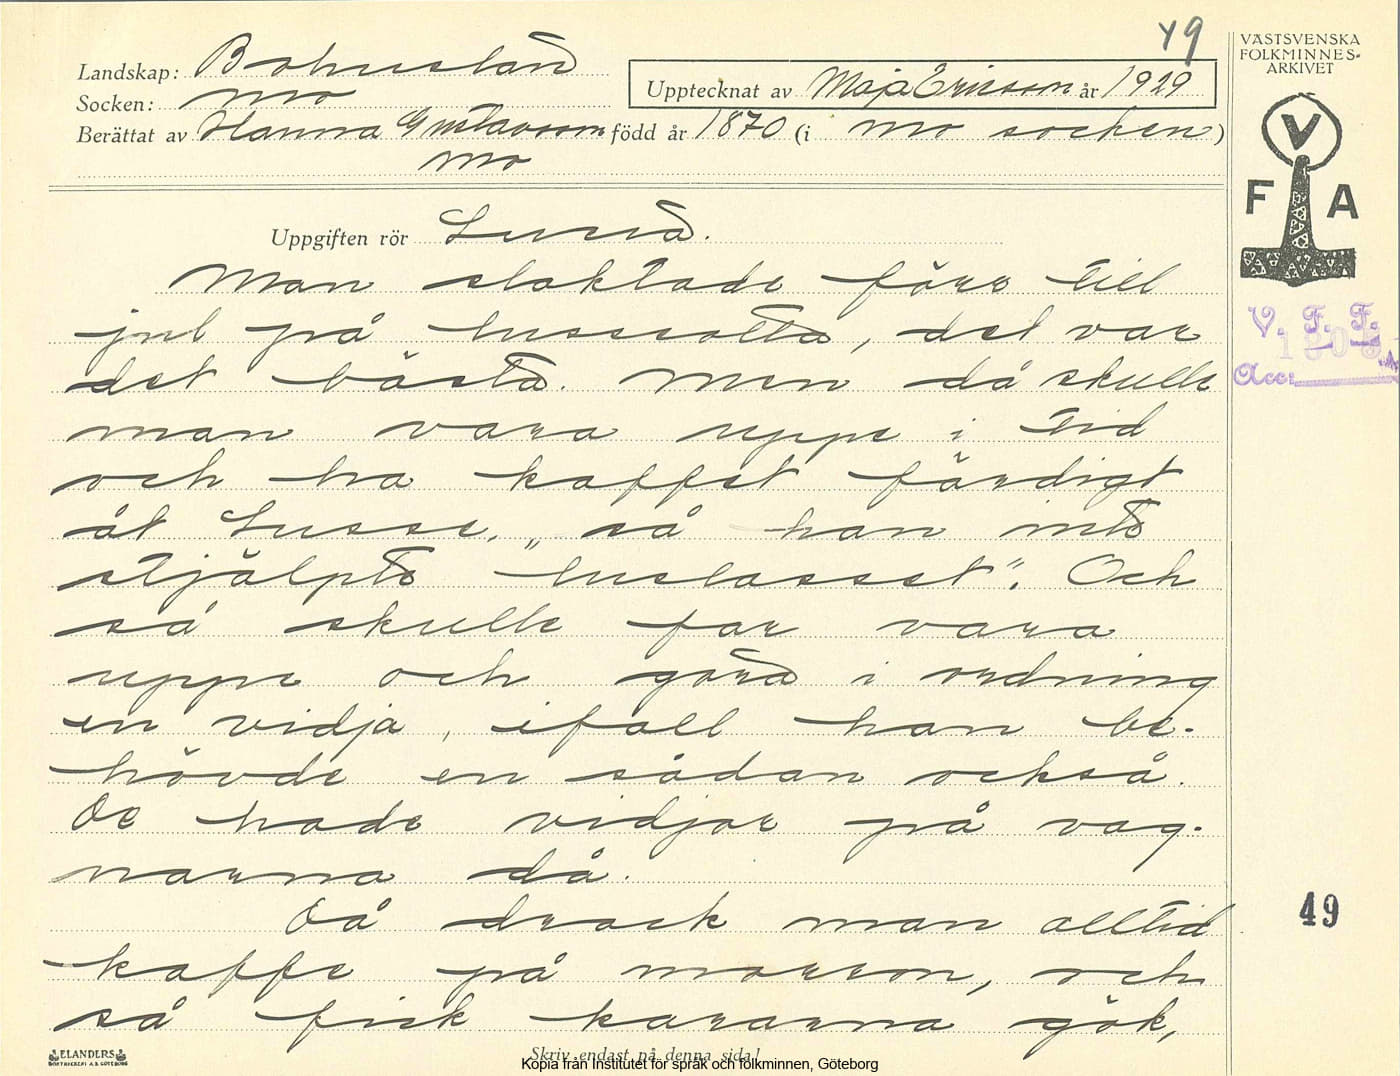 49
VÄSTSVENSKA
FOLKMINNES-
ARKIVET
Landskap: Bohuslän
Socken: Mo
Upptecknat av Maja Ericsson år 1929
Berättat av Hanna Gustavsson född år 1870 (i Mo socken)
Mo
V
F A
Uppgiften rör Lucia.
Man slaktade förr till
jul på lussotta, det var
det bästa. Men då skulle
man vara uppe i tid
och ha kaffet färdigt
åt Lusse, "så han inte
stjälpte huslasset". Och
så skulle far vara
uppe och göra i ordning
en vidja, ifall han be-
hövde en sådan också.
De hade vidjor på vag-
narna då.
Då drack man alltid
kaffe på morron, och
så fick kararna gök,
V. F. F.
Acc:
49
ELANDERS
Skriv endast på denna sida!
Kopia från Institutet för språk och folkminnen, Göteborg